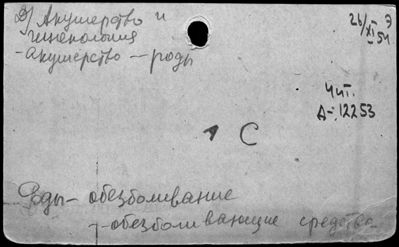 Д) Акушерство и
гинекология
- акушерство - роды
26/XI Э
54
Чит.
А-12253
С
Роды - обезболивание
- обезболивающие средства